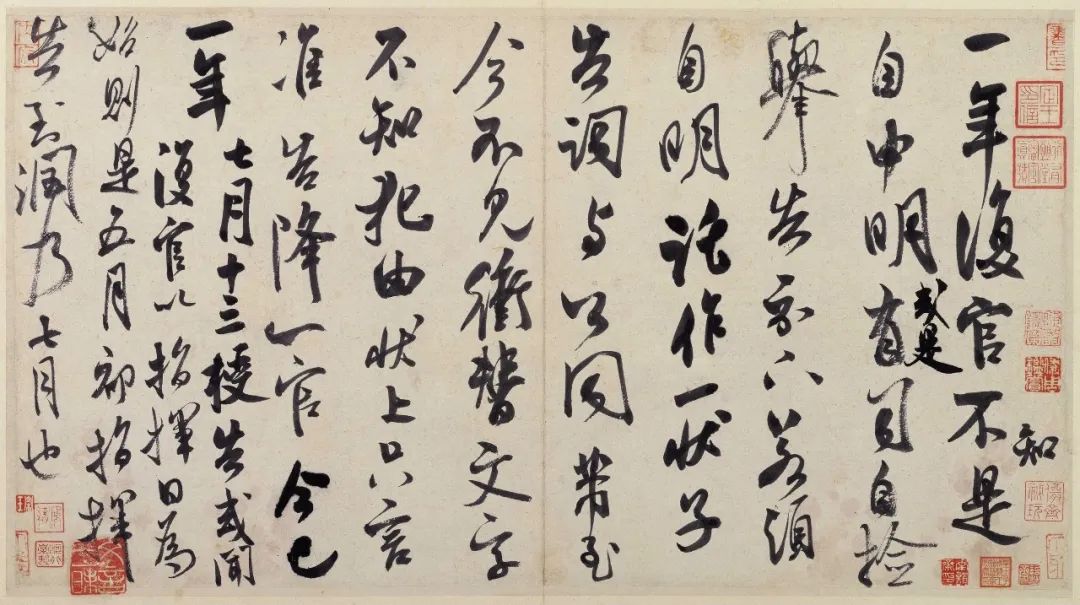 一年復官不知是
自申明或是有司自撿
舉告示下若須
自明託作一狀子
告詞与公同帶至
今不見衝替文字
不知犯由狀上只言
准告降一官今已
一年七月十三授告或聞
復官以指揮日為
始則是五月初指揮
告到潤乃七月也